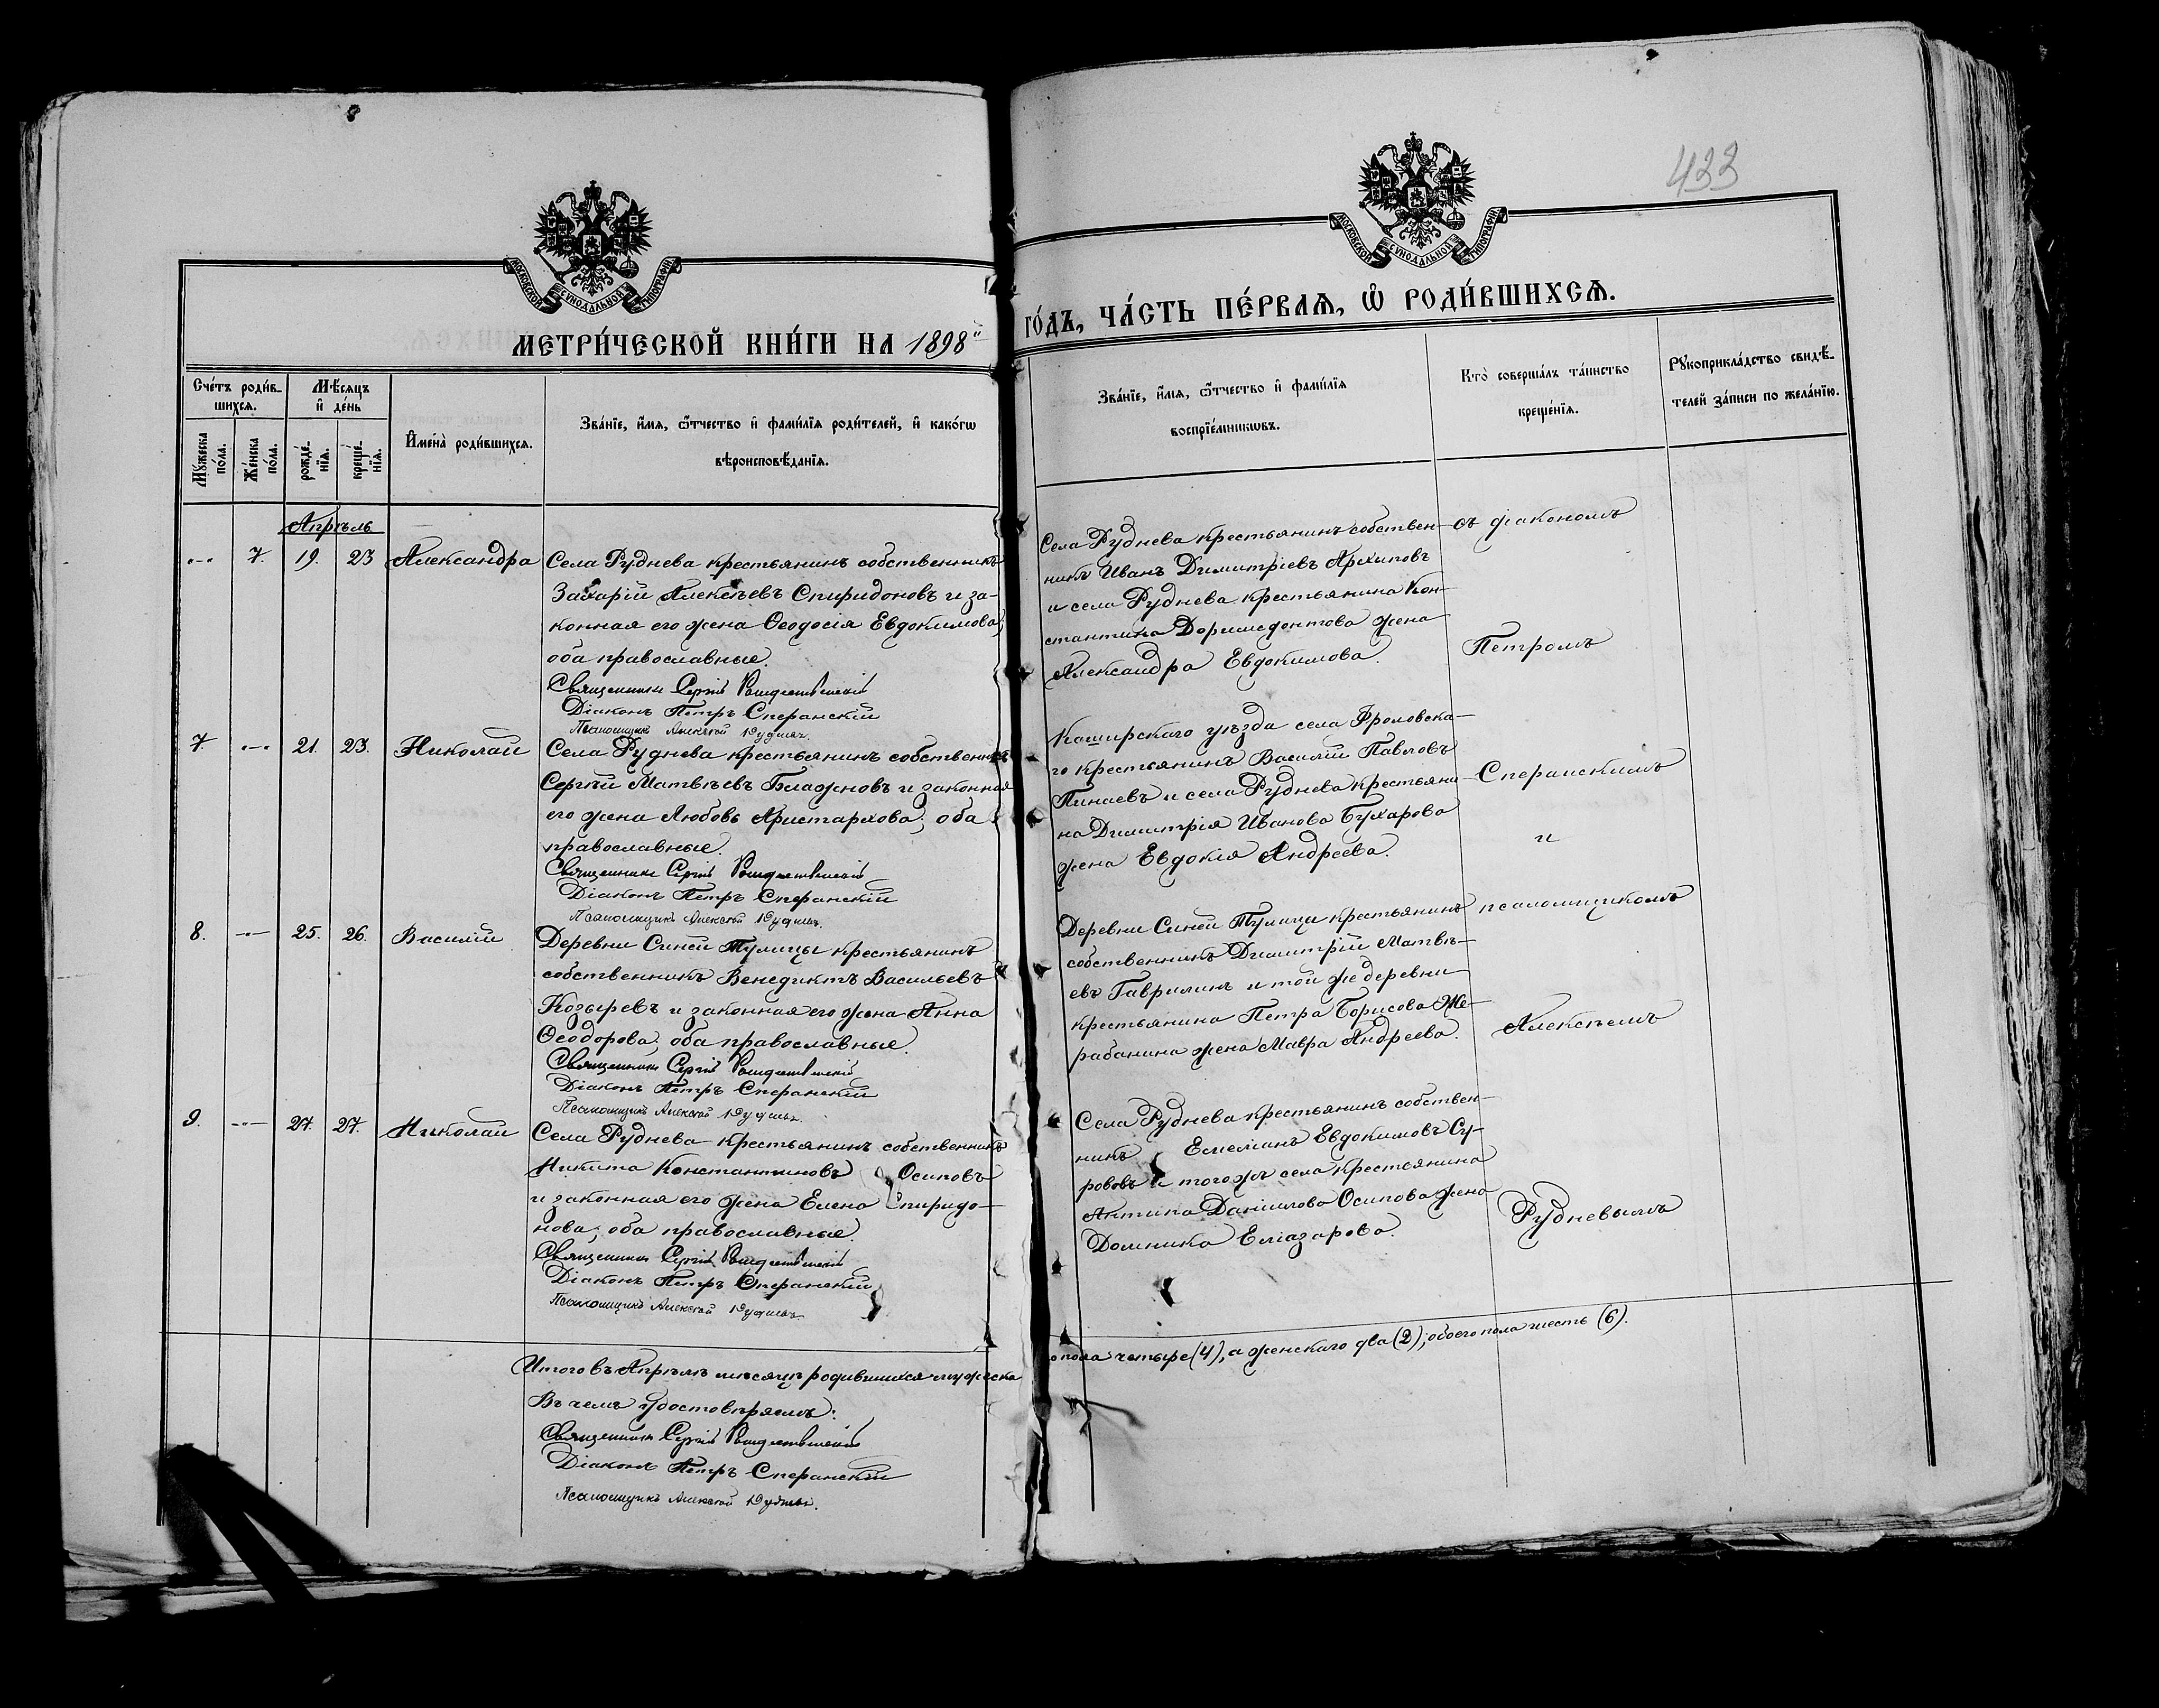 433
МОСКОВСКОЙ СУНОДАЛЬНОЙ ТИПОГРАФІИ
МОСКОВСКОЙ СУНОДАЛЬНОЙ ТИПОГРАФІИ
МЕТРИ́ЧЕСКОЙ КНИ́ГИ НА 1898й
ГО́ДЪ, ЧА́СТЬ ПЕ́РВАѦ, Ѽ РОДИ́ВШИХСѦ.
Сче́тъ роди́в-
шихся.
Мѣ́сяцъ
и҆ де́нь
Мꙋ́жеска
по́ла.
Же́нска
по́ла.
рожде́-
нїѧ.
креще́-
нїѧ.
И҆мена̀ роди́вшихсѧ.
Зва́нїе, и҆́мѧ, ѻ҆́тчество и҆ фами́лїѧ роди́телей, и҆ како́гѡ
вѣроисповѣ́данїѧ.
Зва́нїе, и҆́мѧ, ѻ҆́тчество и҆ фами́лїѧ
воспрїе́мникѡвъ.
Кто̀ соверша́лъ та́инство
креще́нїѧ.
Рꙋкоприкла́дство свидѣ́-
телей за́писи по жела́нїю.
Апрѣль
7. 19. 23 Александра
Села Руднева крестьянинъ собственникъ
Захарій Алексѣевъ Спиридоновъ и за-
конная его жена Ѳеодосія Евдокимова;
оба православные.
Священникъ Сергій Рождественскій
Діаконъ Петръ Сперанскій
Псаломщикъ Алексѣй Рудневъ.
Села Руднева крестьянинъ собствен-
никъ Иванъ Димитріевъ Архиповъ
и села Руднева крестьянина Кон-
стантина Доримедонтова жена
Александра Евдокимова.
съ діакономъ
Петромъ
7. 21. 23. Николай
Села Руднева крестьянинъ собственникъ
Сергѣй Матвѣевъ Блажновъ и законная
его жена Любовь Аристархова; оба
православные.
Священникъ Сергій Рождественскій
Діаконъ Петръ Сперанскій
Псаломщикъ Алексѣй Рудневъ.
Каширскаго уѣзда села Фроловска-
го крестьянинъ Василій Павловъ
Пинаевъ и села Руднева крестьяни-
на Димитрія Иванова Бухарова
жена Евдокія Андреева.
Сперанскимъ
и
8. 25. 26. Василій
Деревни Синей Тулицы крестьянинъ
собственникъ Венедиктъ Васильевъ
Козыревъ и законная его жена Анна
Ѳеодорова; оба православные.
Священникъ Сергій Рождественскій
Діаконъ Петръ Сперанскій
Псаломщикъ Алексѣй Рудневъ.
Деревни Синей Тулицы крестьянинъ
собственникъ Димитрій Матвѣ-
евъ Гаврилинъ и той же деревни
крестьянина Петра Борисова Же-
рабанина жена Мавра Андреева.
псаломщикомъ
Алексѣемъ
9. 27. 27. Николай
Села Руднева крестьянинъ собственникъ
Никита Константиновъ Осиповъ
и законная его жена Елена Спиридо-
нова; оба православные.
Священникъ Сергій Рождественскій
Діаконъ Петръ Сперанскій
Псаломщикъ Алексѣй Рудневъ.
Села Руднева крестьянинъ собствен-
никъ Емеліанъ Евдокимовъ Су-
ровъ и того жъ села крестьянина
Антипа Даніилова Осипова жена
Домника Еліазарова.
Рудневымъ
Итого въ Апрѣлѣ мѣсяцѣ родившихся мужеска
го пола четыре (4), а женскаго два (2); обоего пола шесть (6).
Въ чемъ удостовѣряемъ:
Священникъ Сергій Рождественскій
Діаконъ Петръ Сперанскій
Псаломщикъ Алексѣй Рудневъ.